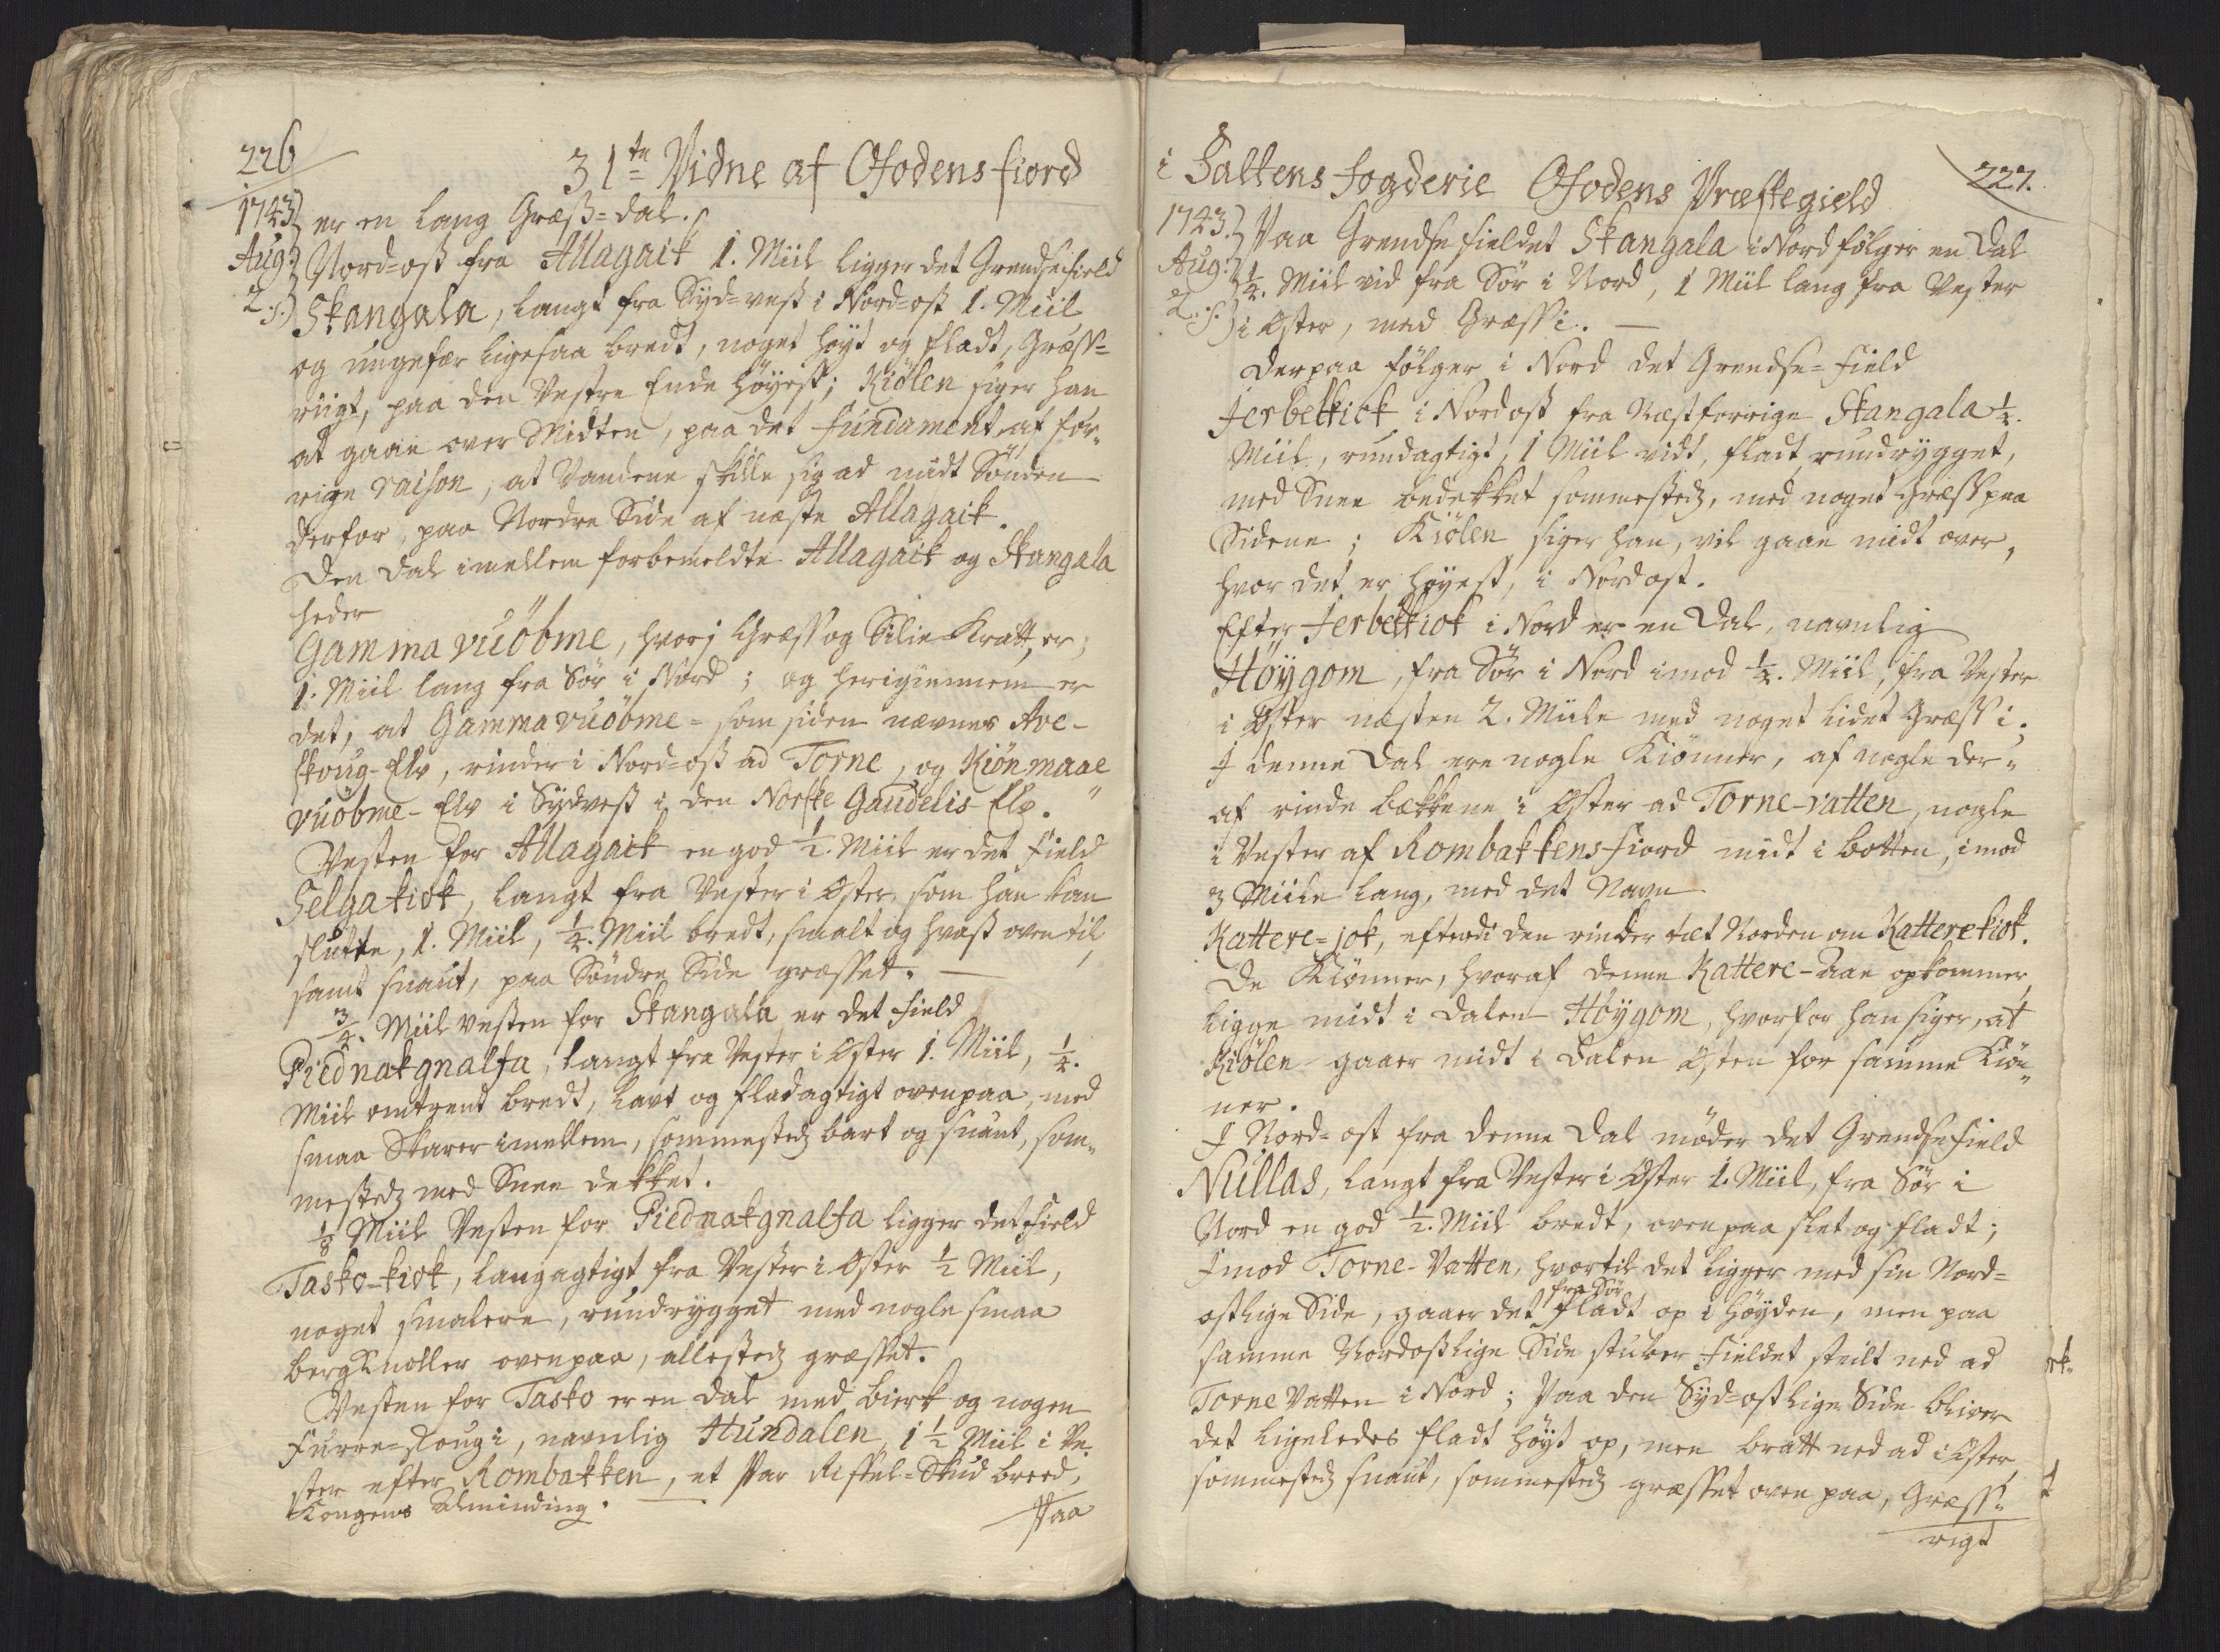 226
31te Vidne af Ofodens fiord
1743 er en lang Græß=dal.
Aug: Nord=ost fra Allagaik 1. Miil ligger det Grendsefield
2.s. Skangala, langt fra Syd=vest i Nord=ost 1. Miil
og ungefær ligesaa bredt, noget høyt og fladt, Græss=
riigt, paa den Vestre Ende høyest; Kiölen siger han
at gaae over Midten, paa det fundament af for¬
rige raison, at Vandene skille sig ad midt Sönden
derfor, paa Nordre Side af næste Allagaik.
Den Dal imellem forbemeldte Allagaik og Skangala
heder
Gamma vuöbme, hvori Græss og Silie Kratt er;
1. Miil lang fra Sör i Nord; og herigiennem er
det, at Gamma vuöbme= som siden nævnes Ave-
skoug-Elv, rinder i Nord=ost ad Torne, og Kiönmaae
vuobme-Elv i Sydvest i den Norske Gaudelis Elv.
Vesten for Allagaik en god ½. Miil er det Field
Selgakiok, langt fra Vester i Öster, som han kan
slutte, 1. Miil, ¼. Miil bredt, smalt og hvast oventil,
samt snaut, paa Söndre Side græsset.
¾. Miil vesten for Skangala er det Field
Piednakgnalfa, langt fra Vester i Öster 1. Miil, ¼.
Miil omtrent bredt, lavt og fladagtigt ovenpaa, med
smaa Skarer imellem, sommestedz bart og snaut, som¬
mestedz med Snee dekket.
⅛ Miil Vesten for Piednakgnalfa ligger det Field
Tasko-kiok, langagtigt fra Vester i Öster ½ Miil,
noget smalere, rundrygget med nogle smaa
bergknoller ovenpaa, allestedz græsset.
Vesten for Tasko er en dal med bierk og nogen
Furre=skoug i, navnlig Hundalen 1½ Miil i Ve¬
ster efter Rombakken, et Par Riffel=Skud breed,
Kongens Alminding.
Paa
i Saltens fogderie Ofodens Præstegield
227.
1743. Paa Grendse fieldet Skangala i Nord fölger en Dal
Aug: ¼. Miil vid fra Sör i Nord, 1 Miil lang fra Vester
2.s. i Öster, med Græss i.
Derpaa fölger i Nord det Grendse=field
Jerbekkiok i Nordost fra Næstforrige Skangala ¼.
Miil, rundagtigt, 1 Miil vidt, fladt rundrygget,
med Snee bedekket sommestedz, med noget Græss paa
Sidene; Kiölen siger han, vil gaae midt over,
hvor det er høyest, i Nordost.
Efter Jerbekkiok i Nord er en Dal, navnlig
Höygom, fra Sör i Nord imod ¼. Miil, fra Vester
i Öster næsten 2. Miile med noget lidet Græss i.
I denne Dal ere nogle Kiönner, af nogle der¬
af rinde bækkene i Öster ad Torne-vatten, nogle
i Vester af Rombakkens-fiord midt i botten, imod
3 Miile lang, med det Navn
Kattere=jok, efterdi den rinder tæt Norden om Katterekiok.
De Kiönner, hvoraf denne Kattere-Aae opkommer,
ligge midt i Dalen Höygom, hvorfor han siger, at
Kiölen gaaer midt i Dalen Østen for samme Kiön¬
ner.
I Nord=ost fra denne Dal møder det Grendsefield
Nullas, langt fra Vester i Öster 1. Miil, fra Sör i
Nord en god ½. Miil bredt, ovenpaa slet og fladt;
Imod Torne-Vatten, hvortil det ligger med sin Nord=
ostlige Side, gaaer det fra Sör fladt op i Höyden, men paa
samme Nordostlige Side stuber Fieldet steilt ned ad
Torne Vatten i Nord; Paa den Syd=ostlige Side bliver
det ligeledes fladt höyt op, men bratt ned ad i Öster,
sommestedz snaut, sommestedz græsset oven paa, Græss¬
rigt